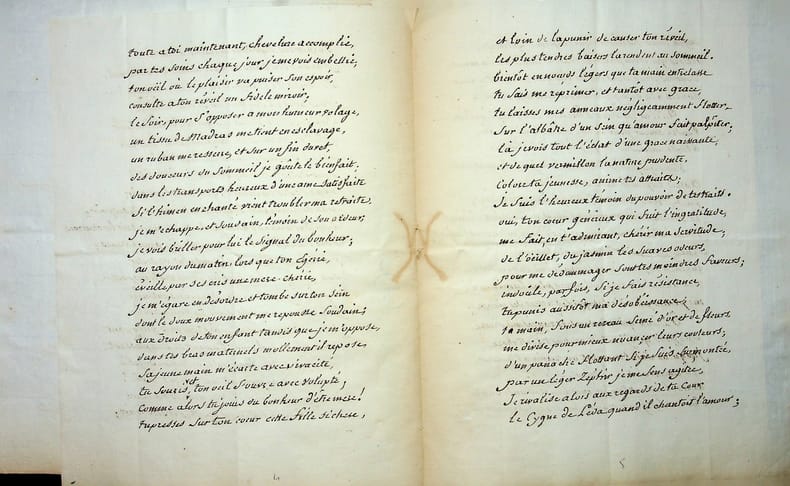 toute a toi maintenant, chevelure accomplie,
par tes soins chaque jour je me vois embellie;
ton oeil où le plaisir va puiser son espoir,
consulte a ton réveil un fidele miroir;
le soir, pour s'opposer a mon humeur volage,
un tissu de Madras me tient en esclavage,
un ruban me resserre, et sur un fin duvet,
des douceurs du sommeil je goûte le bienfait;
dans les transports heureux d'une ame satisfaite
Si l'himen enchanté vient troubler ma retraite
je m'echappe, et soudain, temoin de son ardeur,
je vois briller pour lui le signal du bonheur;
au rayon du matin, lors que ton
éveille par ses cris une mere chérie,
je m'égare en désordre et tombe sur ton sein
dont le doux mouvement me repousse soudain;
aux droits de ton enfant tandis que je m'oppose,
dans tes bras maternels mollement il repose
Sa jeune main m'écarte avec vivacité,
tu souris, et ton oeil s'ouvre avec volupté;
Comme alors tu jouis du bonheur d'être mere!
tu presses sur ton coeur cette fille si chere,
4
et loin de la punir de causer ton réveil,
les plus tendres baisers la rendent au sommeil.
bientôt en noeuds legers que ta main entrelasse
tu sais me reprimer, et tantôt avec grace,
tu laisses mes anneaux négligeamment flotter
Sur l'albâtre d'un sein qu'amour fait palpiter;
là je vois tout l'éclat d'une grace naissante,
et de quel vermillon la nature prudente,
Colore ta jeunesse, anime tes attraits;
Je suis l'heureux témoin du pouvoir de tes traits.
oui, ton coeur généreux qui fuit l'ingratitude,
me fait, en t'admirant, chérir ma servitude;
de l'oeillet, du jasmin les suaves odeurs,
pour me dédommager sont tes moindres faveurs;
indocile, parfois, si je fais résistance,
tu punis aussitôt ma désobeissance;
ta main, sous un rezeau semé d'or et de fleurs
me divise pour mieux nuancer leurs couleurs;
d'un panache flottant si je suis surmontée,
par un léger Zéphir je me sens agitée,
Je rivalise alors aux regards de ta Cour
le Cygne de Léda quand il chantoit l'amour;
5